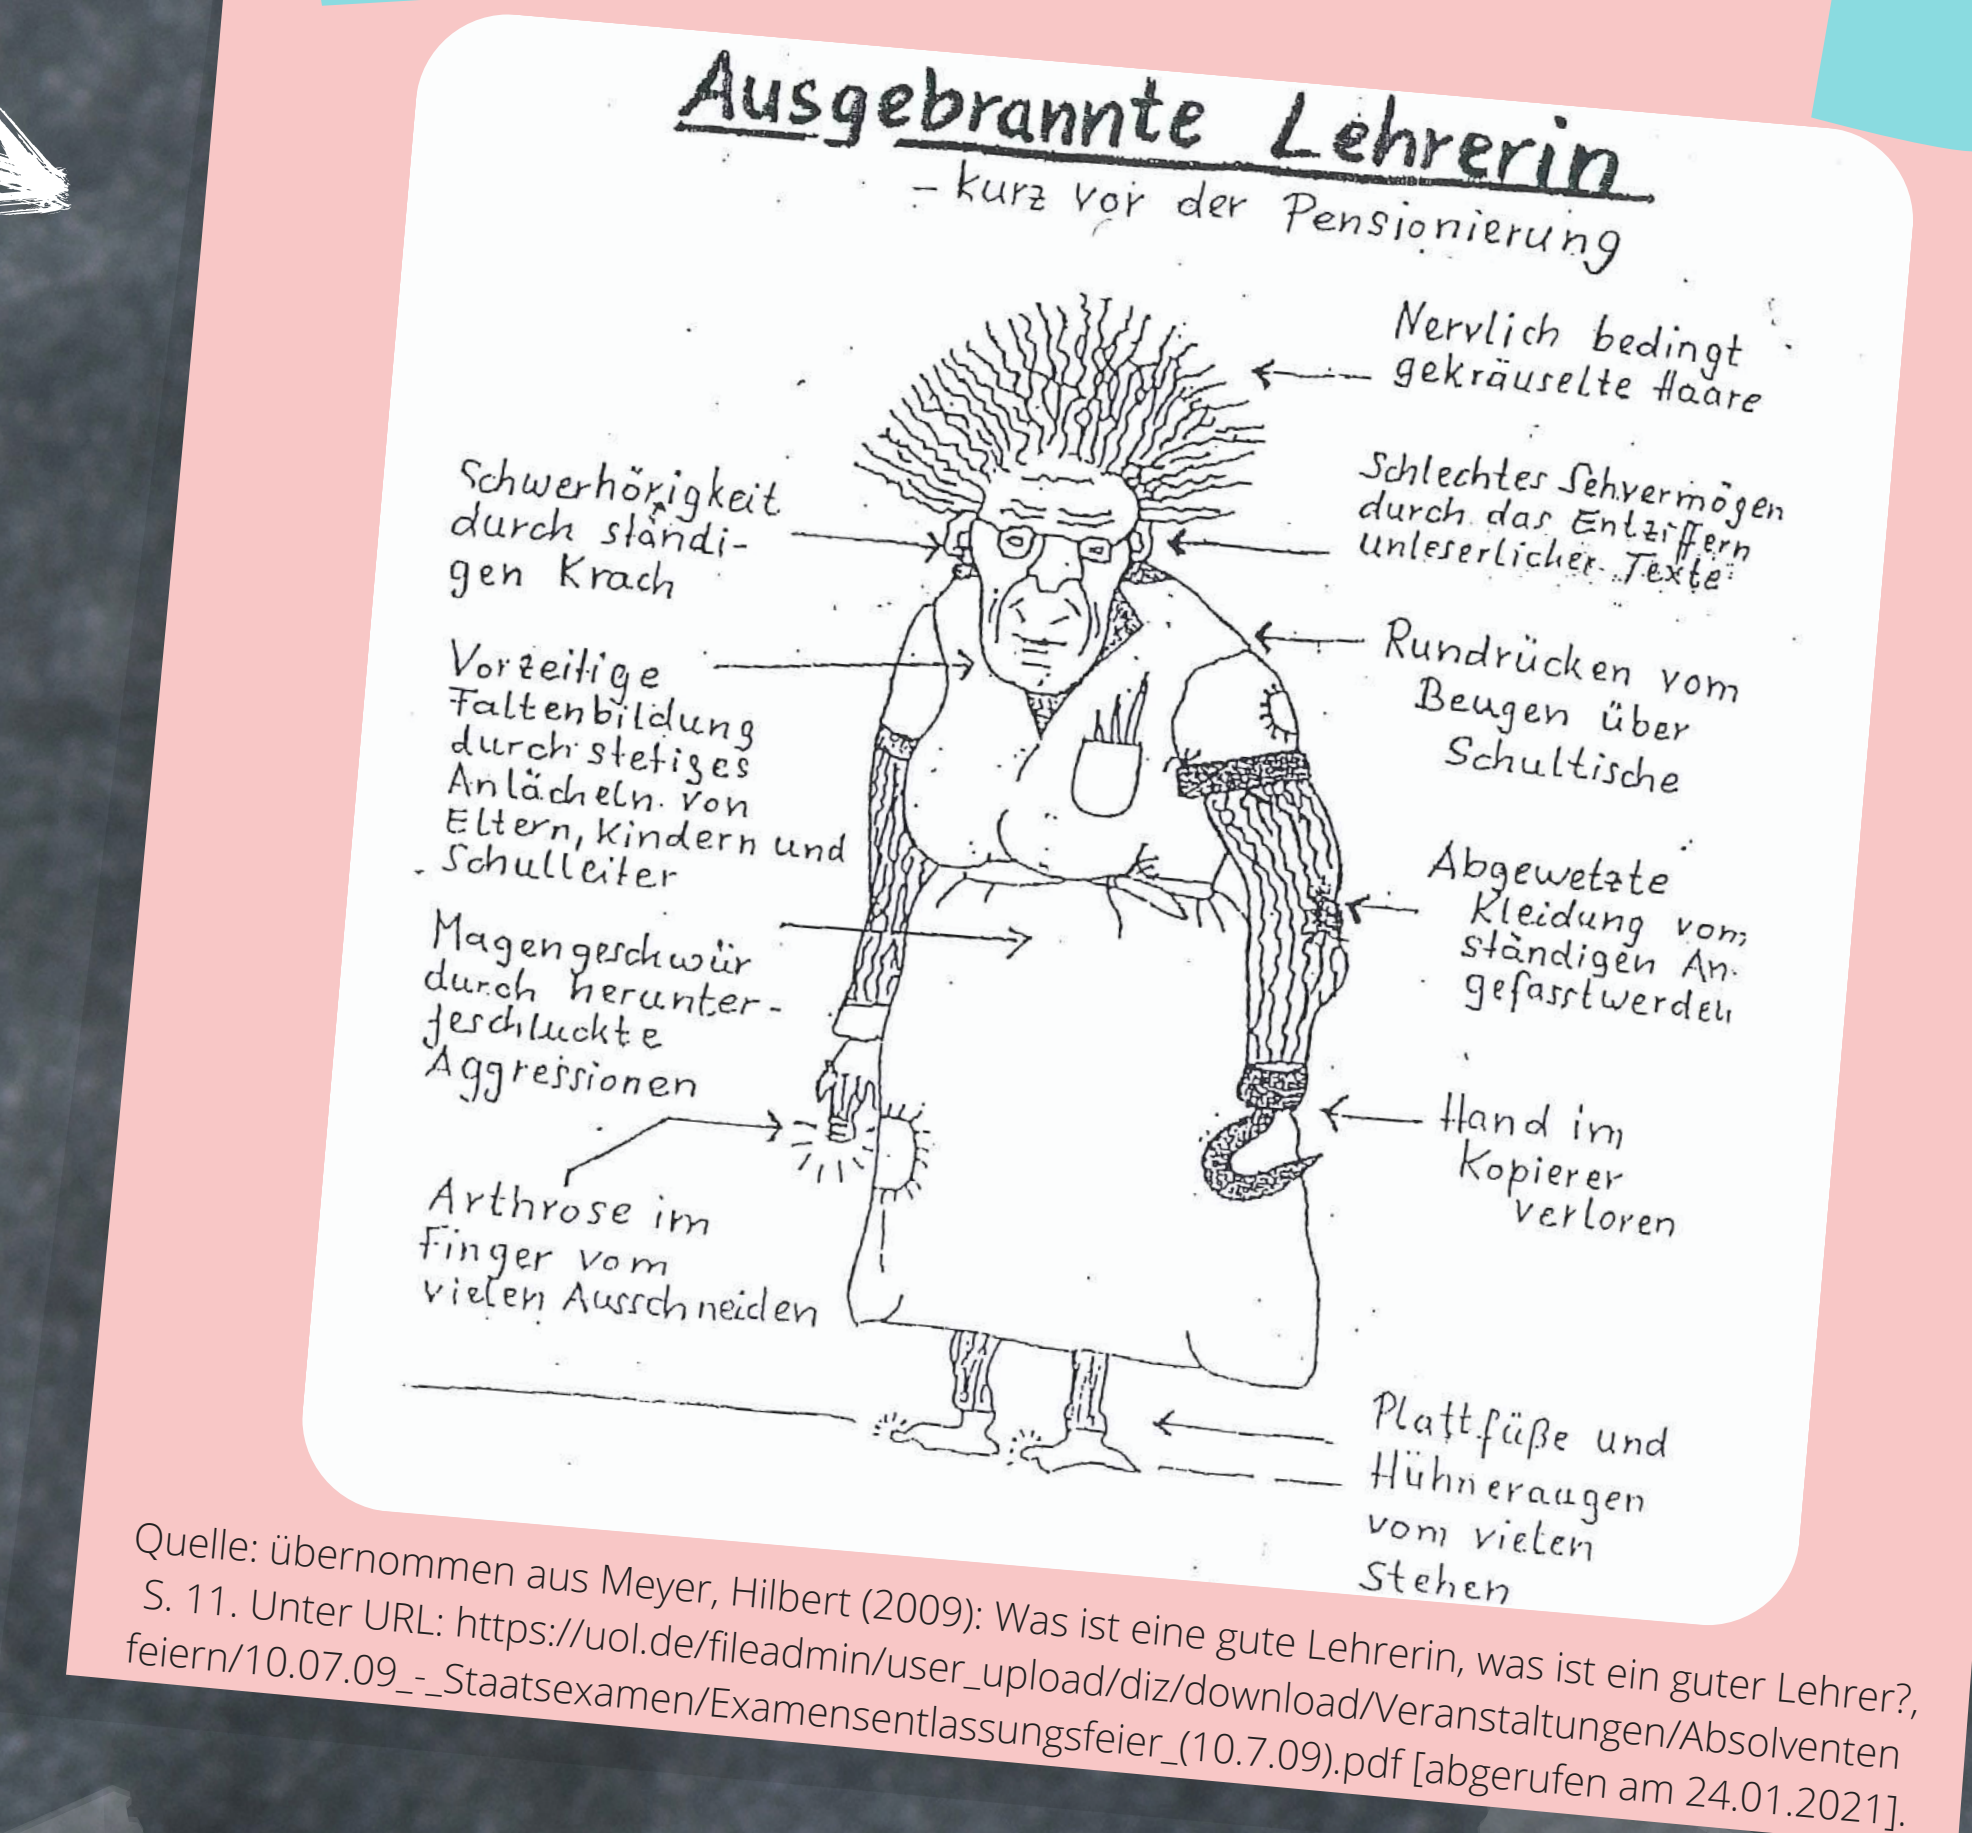 Ausgebrannte Lehrerin
- kurz vor der Pensionierung
Nervlich bedingt
gekräuselte Haare
Schwerhörigkeit
durch ständi-
gen Krach
Schlechtes Sehvermögen
durch das Entziffern
unleserlicher Texte
Vorzeitige
Faltenbildung
durch stetiges
Anlächeln von
Eltern, Kindern und
Schulleiter
Rundrücken vom
Beugen über
Schultische
Magengeschwür
durch herunter-
geschluckte
Aggressionen
Abgewetzte
Kleidung vom
ständigen An-
gefasstwerden
Arthrose im
Finger vom
vielen Ausschneiden
Hand im
Kopierer
verloren
Plattfüße und
Hühneraugen
vom vielen
Stehen
Quelle: übernommen aus Meyer, Hilbert (2009): Was ist eine gute Lehrerin, was ist ein guter Lehrer?,
S. 11. Unter URL: https://uol.de/fileadmin/user_upload/diz/download/Veranstaltungen/Absolventen
feiern/10.07.09_-_Staatsexamen/Examensentlassungsfeier_(10.7.09).pdf [abgerufen am 24.01.2021].